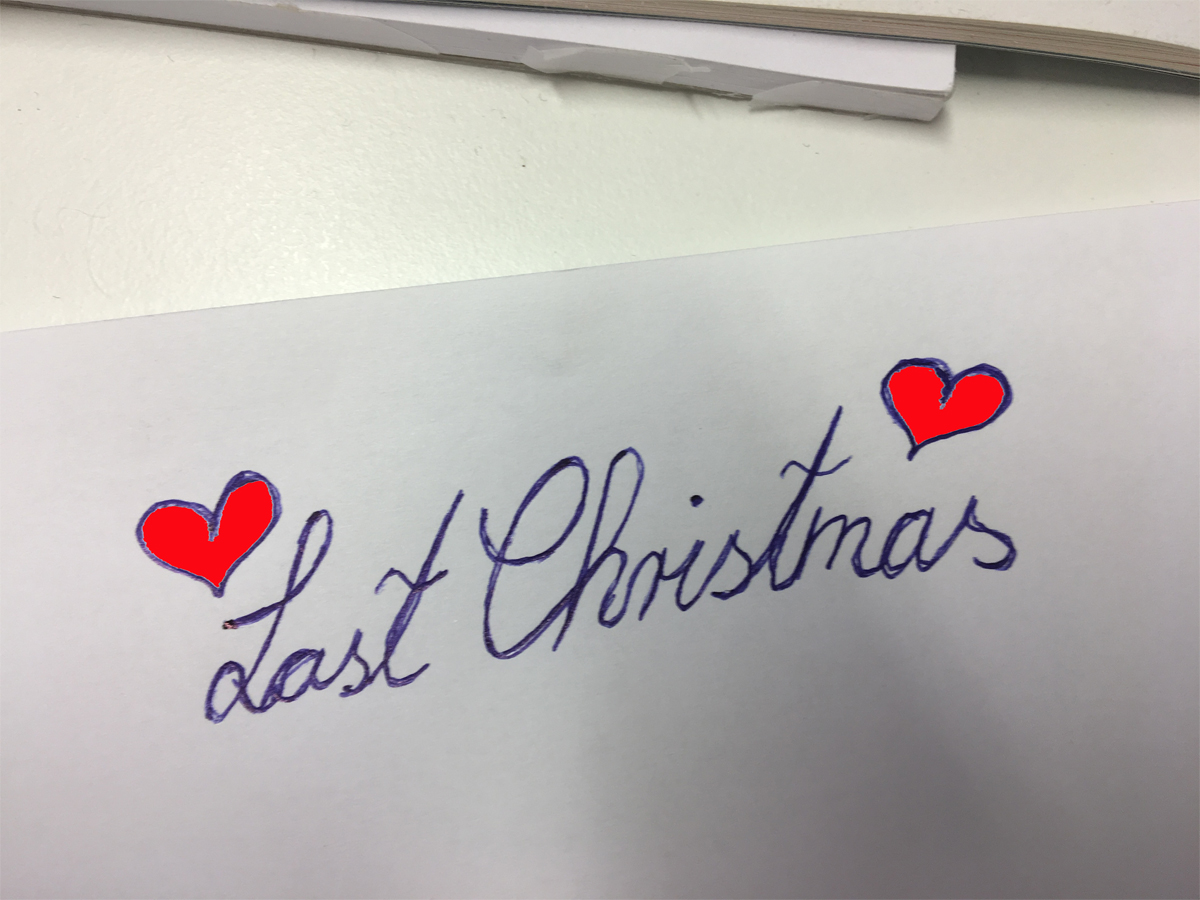 Last Christmas